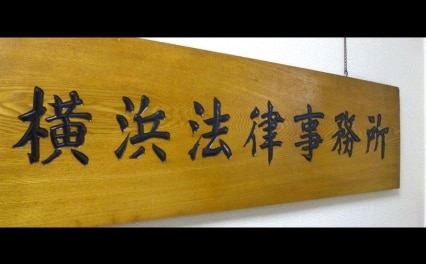 横浜法律事務所